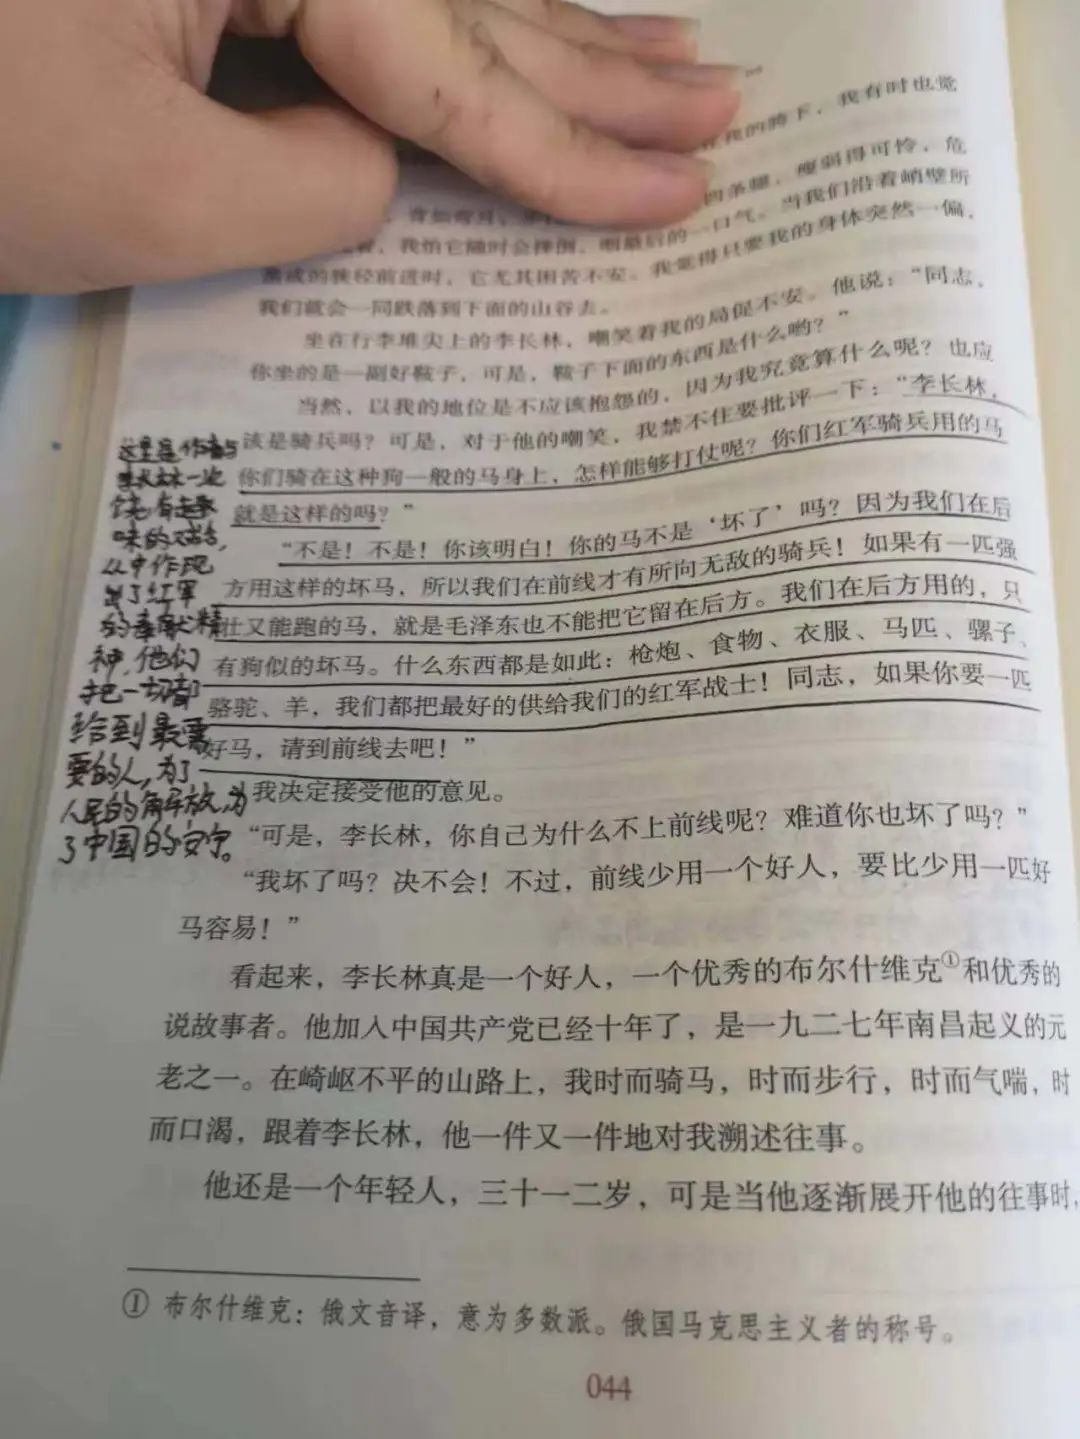 在我的胯下，我有时也觉
四条腿，瘦弱得可怜，危
我怕它随时会摔倒，咽最后的一口气。当我们沿着峭壁所
凿成的狭径前进时，它尤其困苦不安。我觉得只要我的身体突然一偏，
我们就会一同跌落到下面的山谷去。
坐在行李堆尖上的李长林，嘲笑着我的局促不安。他说：“同志，
你坐的是一副好鞍子，可是，鞍子下面的东西是什么哟？”
当然，以我的地位是不应该抱怨的，因为我究竟算什么呢？也应
该是骑兵吗？可是，对于他的嘲笑，我禁不住要批评一下：“李长林，
你们骑在这种狗一般的马身上，怎样能够打仗呢？你们红军骑兵用的马
就是这样的吗？”
“不是！不是！你该明白！你的马不是‘坏了’吗？因为我们在后
方用这样的坏马，所以我们在前线才有所向无敌的骑兵！如果有一匹强
壮又能跑的马，就是毛泽东也不能把它留在后方。我们在后方用的，只
有狗似的坏马。什么东西都是如此：枪炮、食物、衣服、马匹、骡子、
骆驼、羊，我们都把最好的供给我们的红军战士！同志，如果你要一匹
好马，请到前线去吧！”
我决定接受他的意见。
“可是，李长林，你自己为什么不上前线呢？难道你也坏了吗？”
“我坏了吗？决不会！不过，前线少用一个好人，要比少用一匹好
马容易！”
看起来，李长林真是一个好人，一个优秀的布尔什维克①和优秀的
说故事者。他加入中国共产党已经十年了，是一九二七年南昌起义的元
老之一。在崎岖不平的山路上，我时而骑马，时而步行，时而气喘，时
而口渴，跟着李长林，他一件又一件地对我溯述往事。
他还是一个年轻人，三十一二岁，可是当他逐渐展开他的往事时，
① 布尔什维克：俄文音译，意为多数派。俄国马克思主义者的称号。
044
这里是作者与
李长林一次
饶有趣
味的对话，
从中体现
出了红军
的奉献精
神，他们
把一切都
给到最需
要的人，为了
人民的解放，为
了中国的安宁。